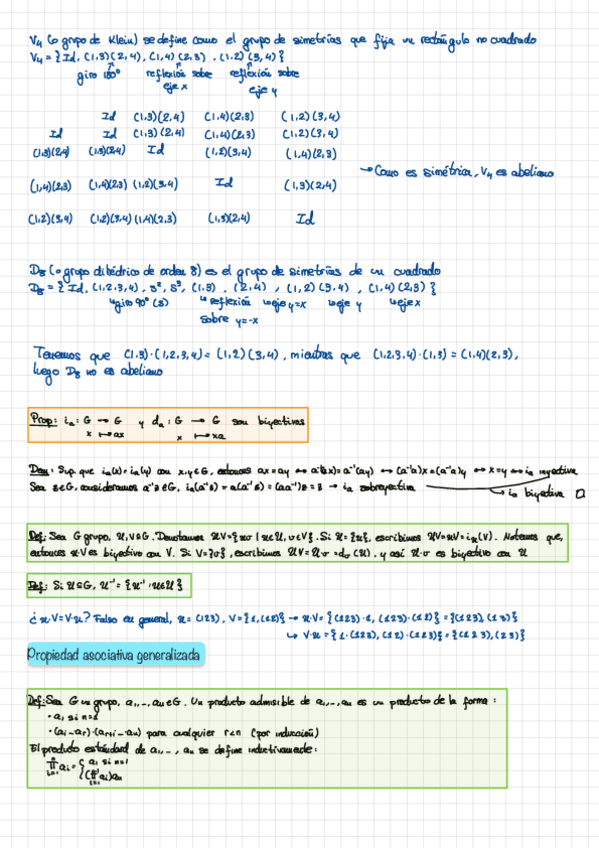 V₄ (o grupo de Klein) se define como el grupo de simetrías que fija un rectángulo no cuadrado
V₄ = { Id, (1,3)(2,4), (1,4)(2,3), (1,2)(3,4) }
giro 180° reflexión sobre eje x reflexión sobre eje y
Id (1,3)(2,4) (1,4)(2,3) (1,2)(3,4)
Id Id (1,3)(2,4) (1,4)(2,3) (1,2)(3,4)
(1,3)(2,4) (1,3)(2,4) Id (1,2)(3,4) (1,4)(2,3)
→ Como es simétrica, V₄ es abeliano
(1,4)(2,3) (1,4)(2,3) (1,2)(3,4) Id (1,3)(2,4)
(1,2)(3,4) (1,2)(3,4) (1,4)(2,3) (1,3)(2,4) Id
D₈ (o grupo dihédrico de orden 8) es el grupo de simetrías de un cuadrado
D₈ = { Id, (1,2,3,4), s², s³, (1,3), (2,4), (1,2)(3,4), (1,4)(2,3) }
↳ giro 90° (s) ↳ reflexión ↳ eje y=x ↳ eje y ↳ eje x
sobre y=-x
Tenemos que (1,3)·(1,2,3,4) = (1,2)(3,4), mientras que (1,2,3,4)·(1,3) = (1,4)(2,3),
luego D₈ no es abeliano
Prop: iₐ: G → G y dₐ: G → G son biyectivas
x ↦ ax x ↦ xa
Dem: Sup. que iₐ(x)=iₐ(y) con x,y∈G, entonces ax=ay ↔ a⁻¹(ax)=a⁻¹(ay) ↔ (a⁻¹a)x=(a⁻¹a)y ↔ x=y ↔ iₐ inyectiva
Sea z∈G, consideramos a⁻¹z∈G, iₐ(a⁻¹z)=a(a⁻¹z)=(aa⁻¹)z=z → iₐ sobreyectiva → iₐ biyectiva □
Def: Sea G grupo, U,V⊆G. Denotamos UV={uv | u∈U, v∈V}. Si U={u}, escribimos UV=uV=iᵤ(V). Notemos que,
entonces u·V es biyectivo con V. Si V={v}, escribimos UV=U·v=dᵥ(U), y así U·v es biyectivo con U
Def: Si U⊆G, U⁻¹={u⁻¹ : u∈U}
¿u·V=V·u? Falso en general, u=(123), V={1,(12)} → u·V={(123)·1, (123)·(12)}={(123),(13)}
↳ V·u={1·(123), (12)·(123)}={(123),(23)}
Propiedad asociativa generalizada
Def: Sea G un grupo, a₁,…,aₙ∈G. Un producto admisible de a₁,…,aₙ es un producto de la forma:
· a₁ si n=1
· (a₁…aᵣ)·(aᵣ₊₁…aₙ) para cualquier r<n (por inducción)
El producto estándard de a₁,…,aₙ se define inductivamente:
∏ⁿᵢ₌₁ aᵢ = { a₁ si n=1
(∏ⁿ⁻¹ᵢ₌₁ aᵢ)aₙ